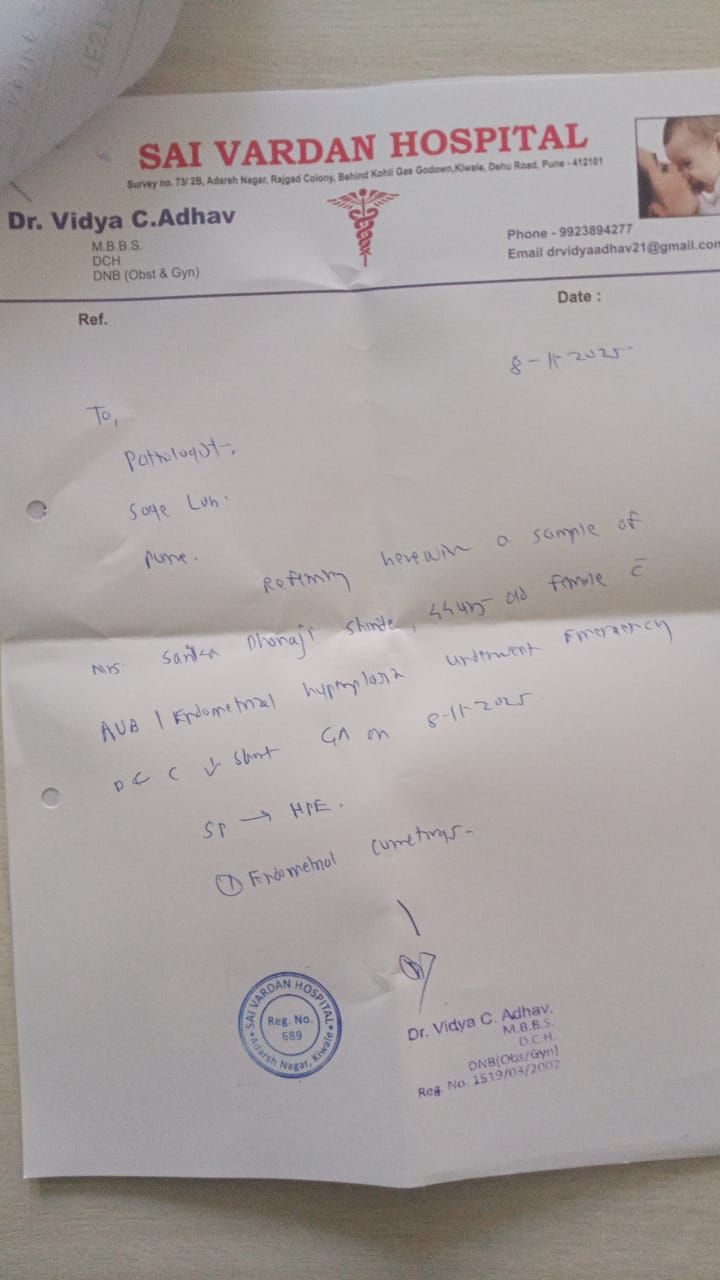 SAI VARDAN HOSPITAL
Survey no. 73/ 2B, Adarsh Nagar, Rajgad Colony, Behind Kohli Gas Godown,Kiwale, Dehu Road, Pune - 412101
Dr. Vidya C.Adhav
M.B.B.S.
DCH
DNB (Obst & Gyn)
Phone - 9923894277
Email drvidyaadhav21@gmail.com
Ref.
Date :
8-11-2025
To,
Pathologist,
Lab.
Pune.
Referring herewith a sample of
Mrs. Dhanaji Shinde, 44 yrs old female c̄
AUB / Endometrial hyperplasia underwent Emergency
D & C ↓ short GA on 8-11-2025.
SP → HPE.
① Endometrial curettings-
SAI VARDAN HOSPITAL
Reg. No.
689
Adarsh Nagar, Kiwale
Dr. Vidya C. Adhav.
M.B.B.S.
D.C.H.
DNB(Obs/Gyn)
Reg. No. 1519/03/2002